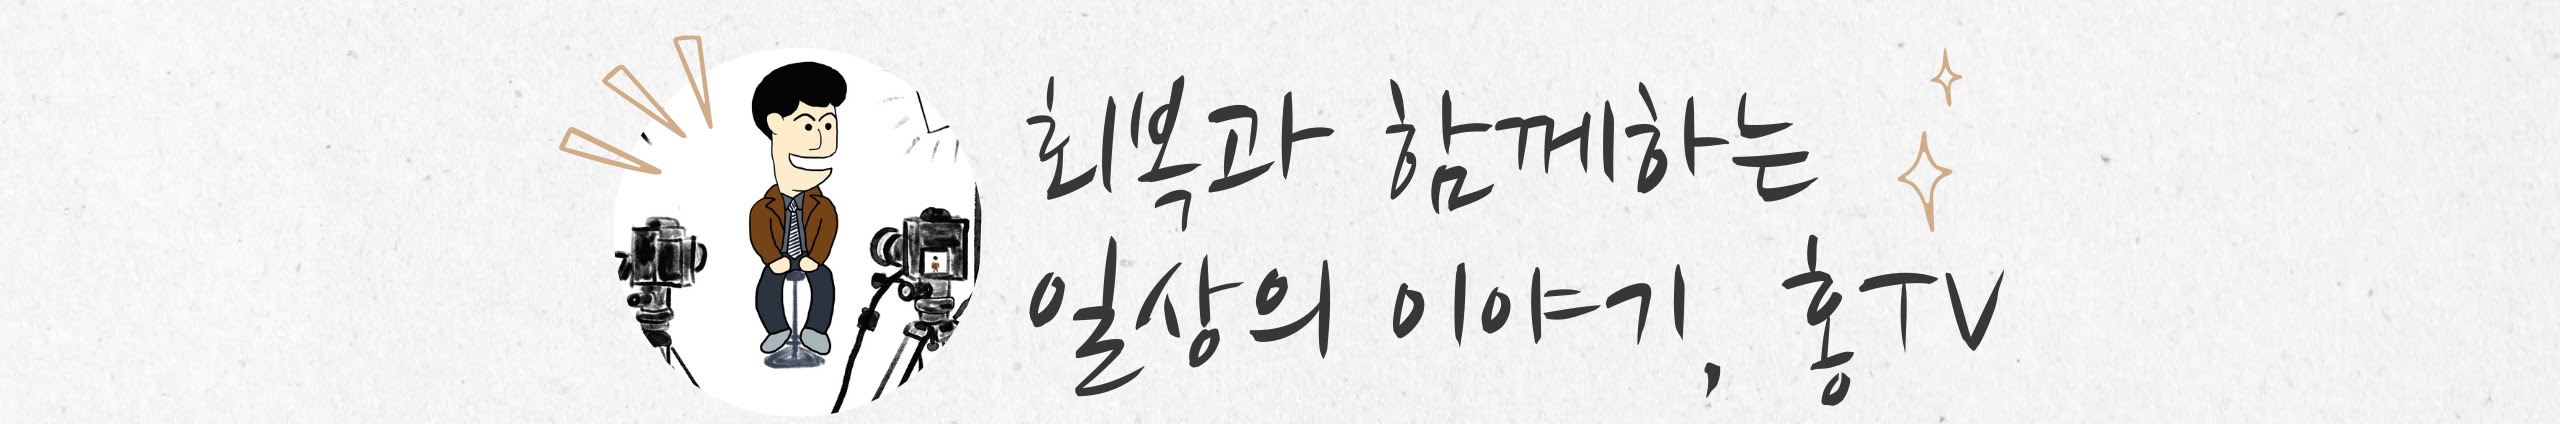 회복과 함께하는
일상의 이야기, 홍TV